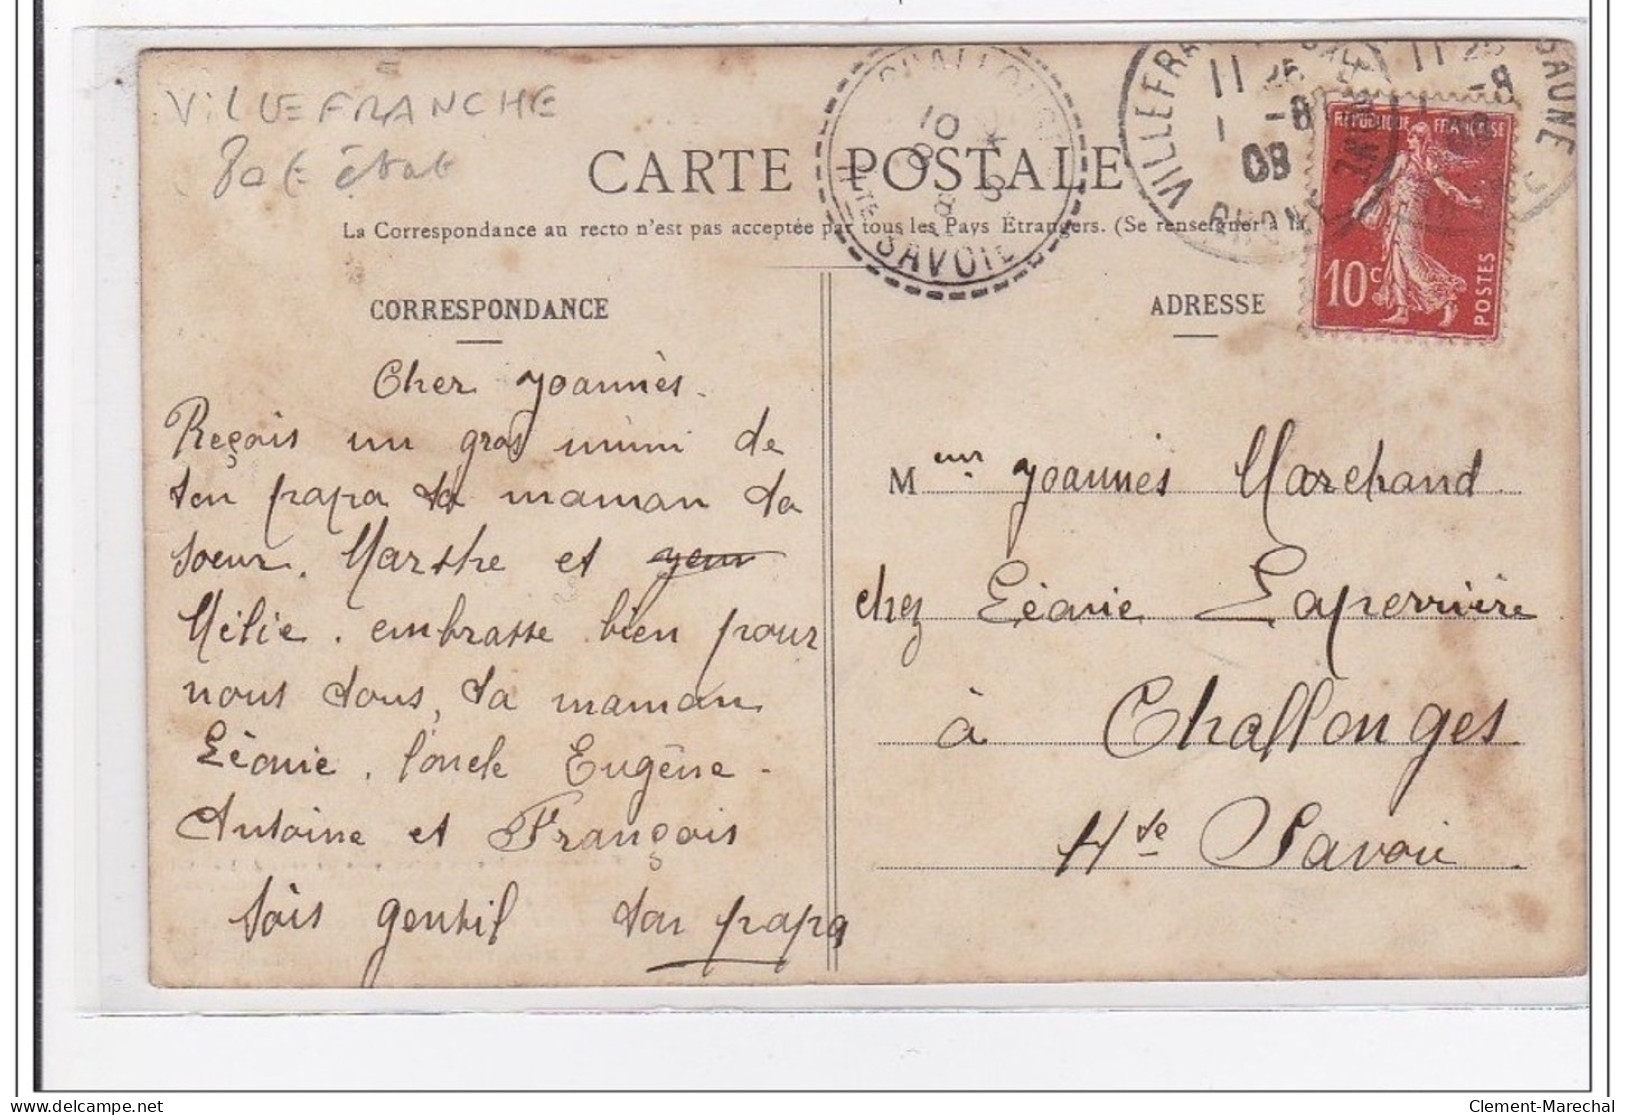 VILLEFRANCHE
Bat état
CARTE POSTALE
La Correspondance au recto n'est pas acceptée par tous les Pays Étrangers. (Se renseigner à la
CHALLONGES
10
8
08
HTE SAVOIE
VILLEFRANCHE
11 25
1 -8
08
RHONE
SAONE
11 25
-8
RÉPUBLIQUE FRANÇAISE
10c
POSTES
CORRESPONDANCE
Cher Joannès.
Reçois un gros mimi de
ton papa ta maman ta
soeur. Marthe et
Mélie. embrasse bien pour
nous tous, ta maman
Léonie. l'oncle Eugène.
Antoine et François
Sois gentil ton papa
ADRESSE
Meur Joannès Marchand
chez Léonie Laperrière
à Challonges
Hte Savoie
Clement-Marechal